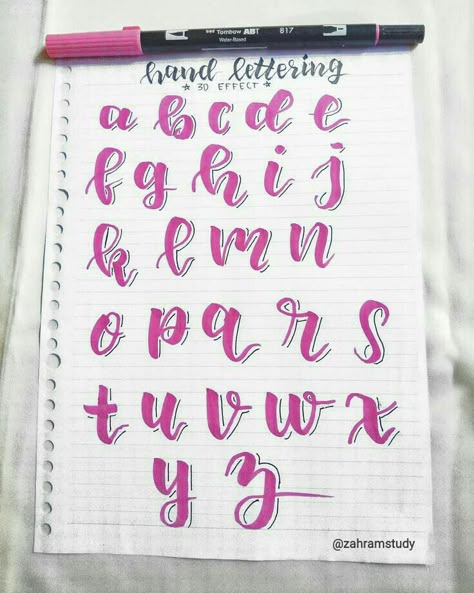 Tombow ABT 817
Water-Based
hand lettering
3D EFFECT
a b c d e
f g h i j
k l m n
o p q r s
t u v w x
y z
@zahramstudy